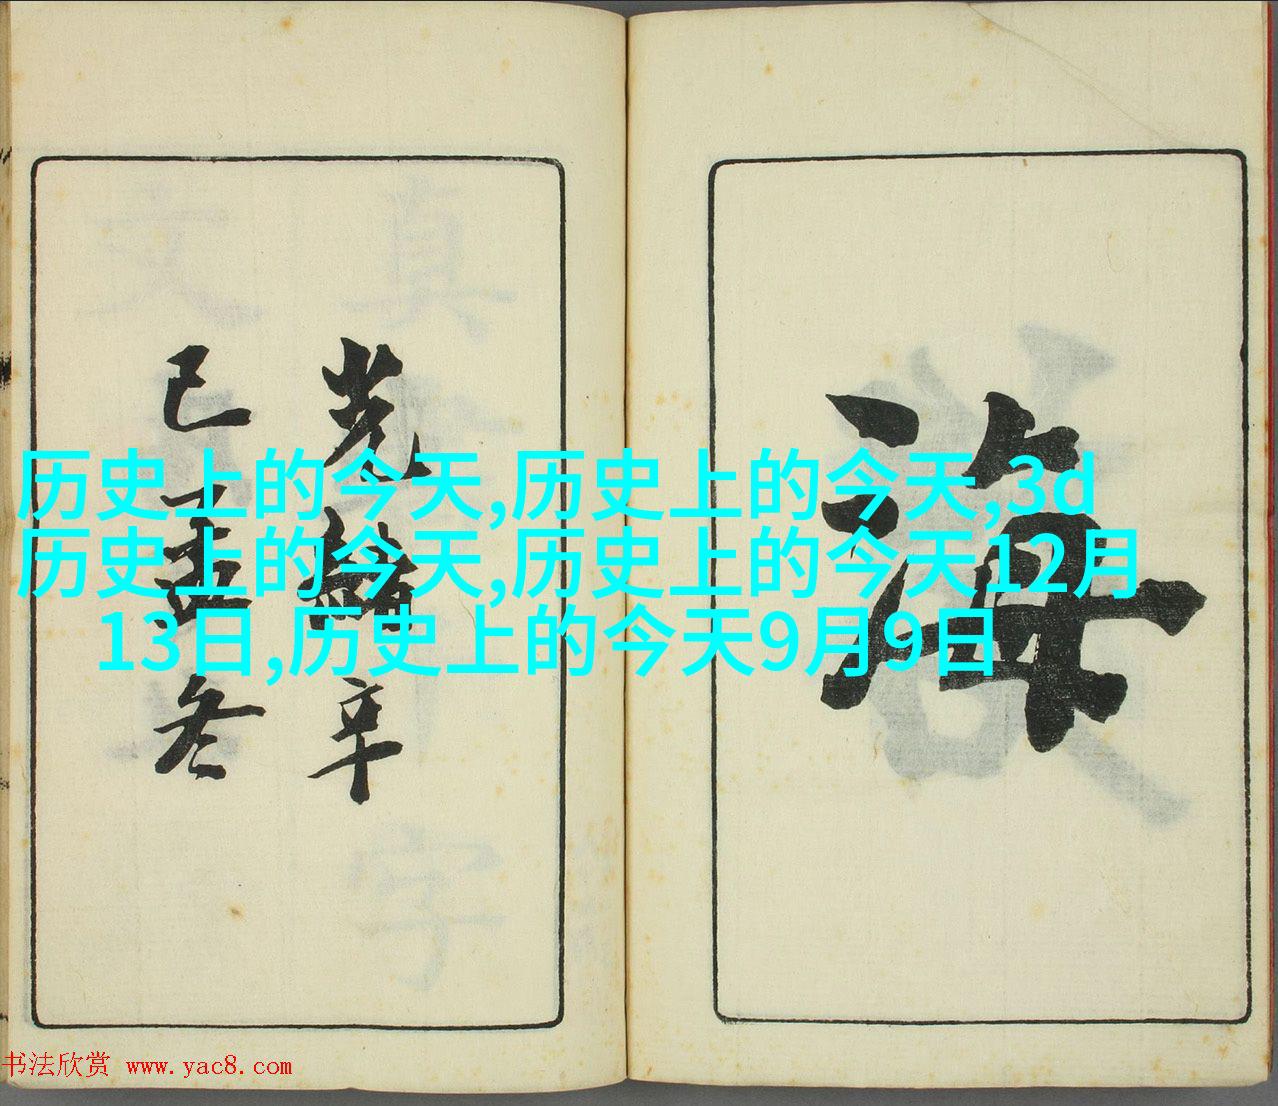 海
光緒辛
巳孟冬
历史上的今天,历史上的今天,3d
历史上的今天,历史上的今天12月
13日,历史上的今天9月9日
书法欣赏 www.yac8.com